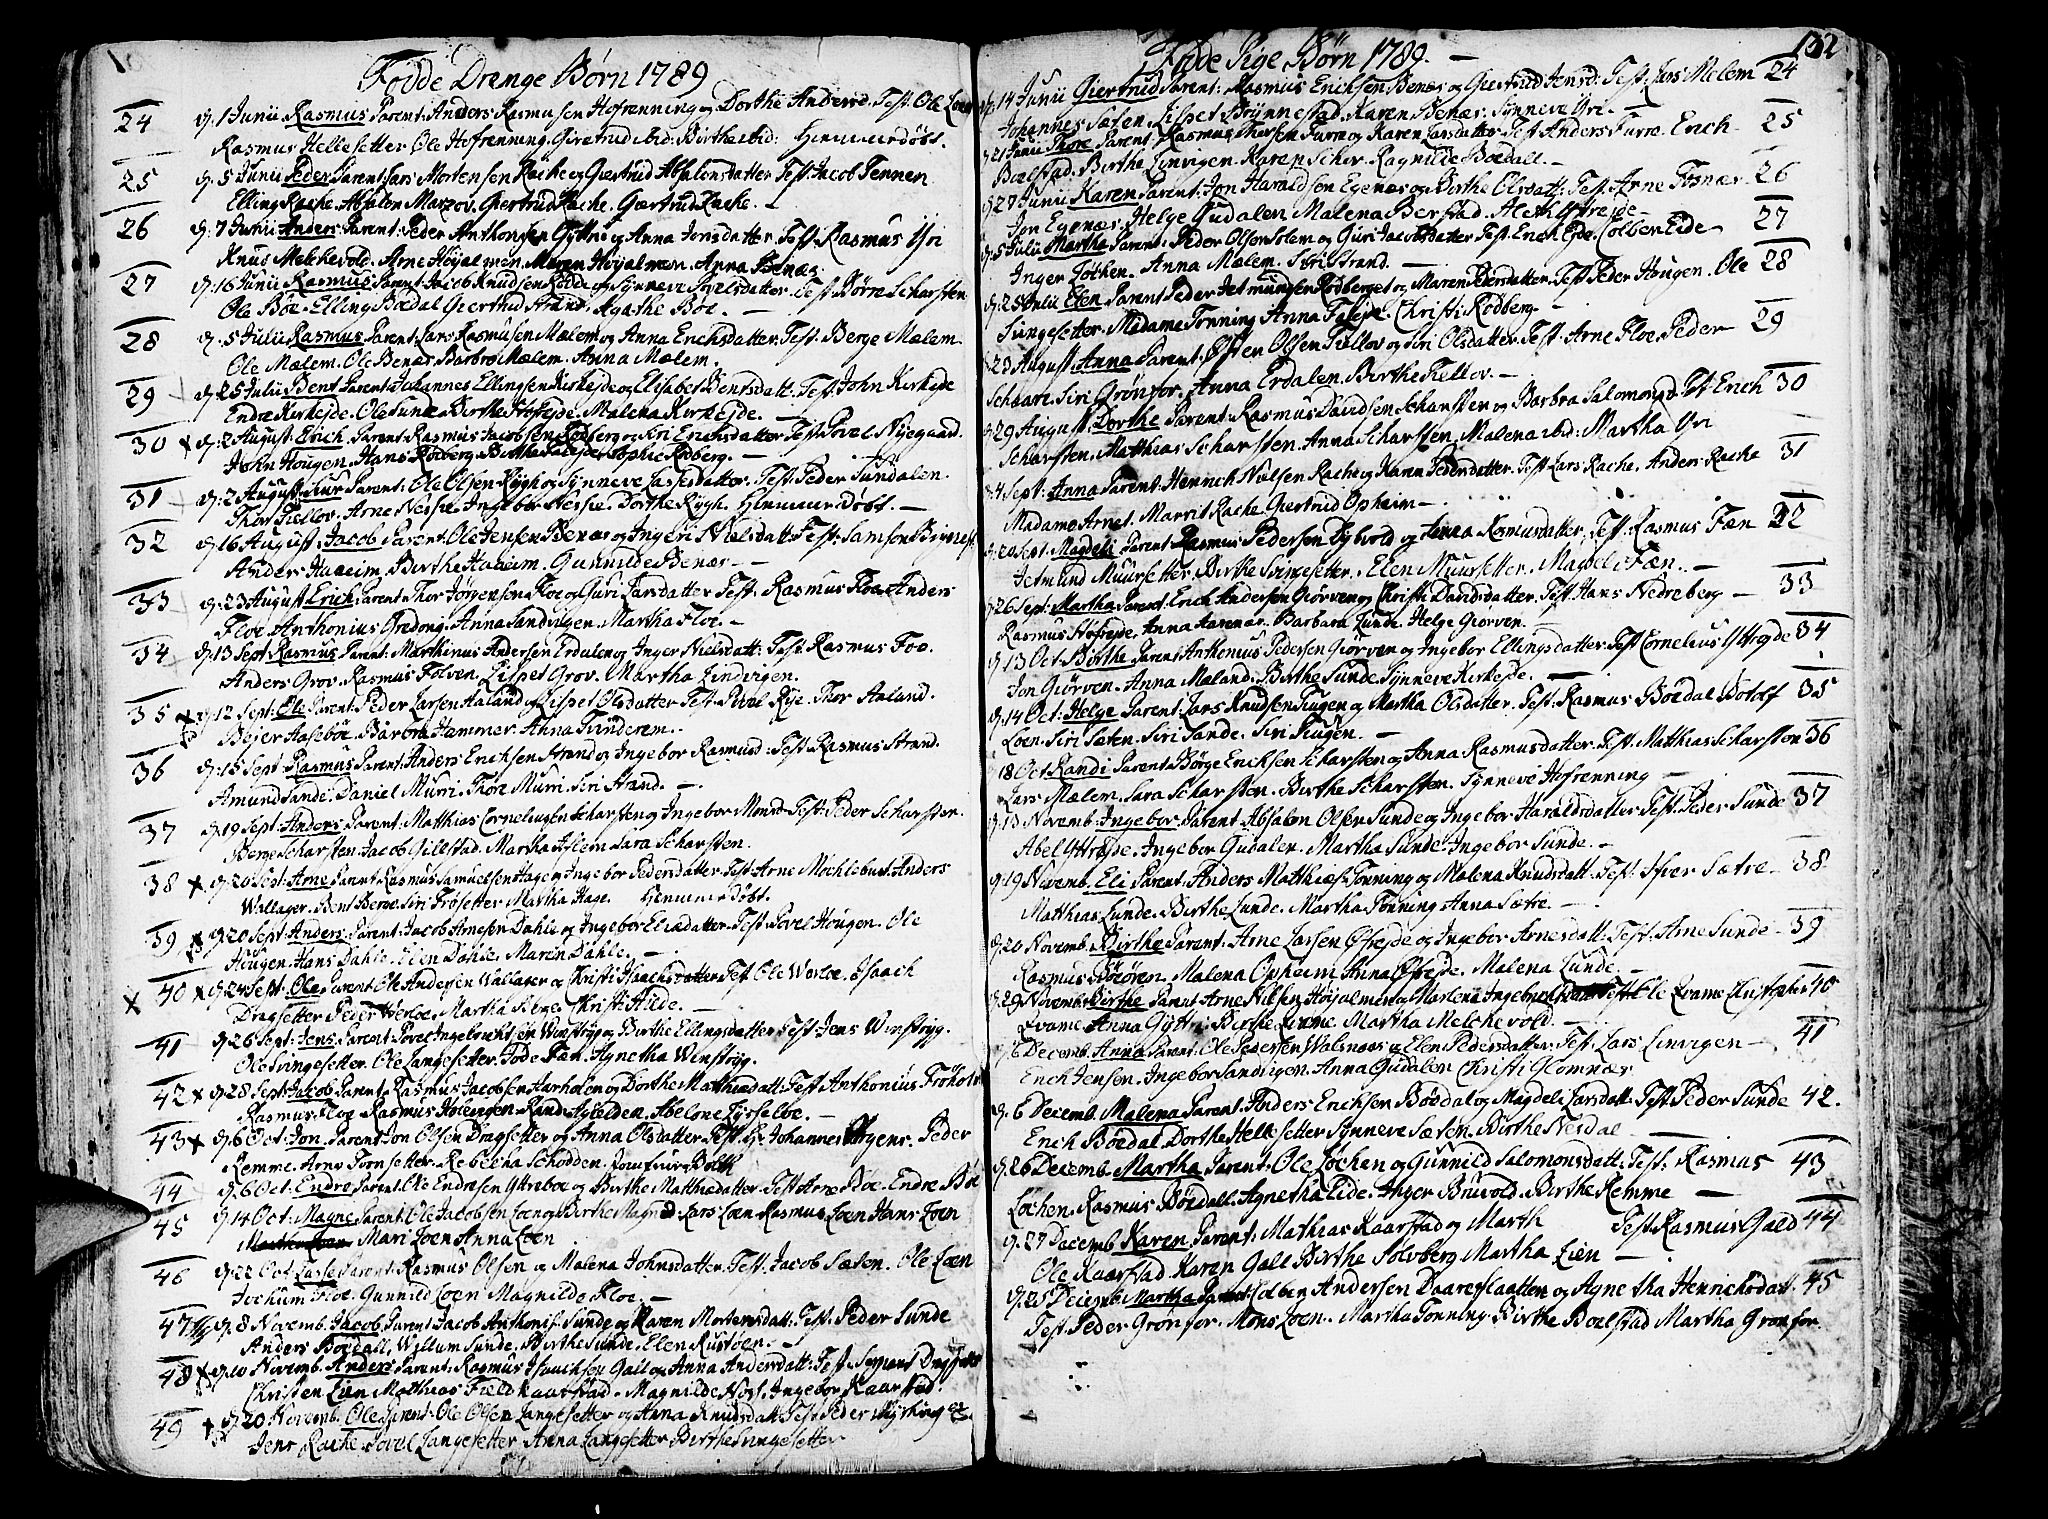 Fødde Drænge Børn 1789
24 d. 1 Junii Rasmus Parent: Anders Rasmusen Hofrenning og Dorthe Andersd. Test: Ole Loen
Rasmus Hellesetter Ole Hofrenning. Giertrud ibid: Birthe ibid: Hiemmedøbt.
25 d. 5 Junii Peder Parent: Lars Mortensen Rache og Giertrud Absalonsdatter Test: Jacob Tennen
Elling Rache. Absalon Marzov. Giertrud Rache. Giertrud Rache.
26 d. 7 Junii Anders Parent: Peder Anthonsen Gyttri og Anna Jonsdatter. Test: Rasmus Yri
Knud Melchevold. Arne Høyalmen. Maren Høyalmen. Anna Benæs.
27 d. 16 Junii Rasmus Parent: Jacob Knudsen Bødde og Synneve Povelsdatter. Test: Børre Scharsten
Ole Bøe. Elling Bøedal Giertrud Strand. Agathe Bøe.
28 d. 5 Julii Rasmus Parent: Lars Rasmusen Mælem og Anna Erichsdatter. Test: Berge Mælem.
Ole Mælem. Ole Benæs. Barbro Mælem. Anna Mælem.
29 d. 25 Julii Bent Parent: Johannes Ellingsen Kirkejde og Elisabet Bentsdatt: Test: John Kirkejde
Endre Kirkejde. Ole Sunde. Birthe Høfrejde. Malena Kirkejde.
30 d. 2 August: Erich Parent: Rasmus Jacobsen Rødberg og Siri Erichsdatter Test: Povel Nyegaard.
John Hougen. Hans Rødberg. Birthe Faleide Sophie Rødberg.
31 d. 2 August: Siur Parent: Ole Olsen Rygh og Synneve Lassedatter. Test: Peder Sundalen.
Thor Fiellov. Arne Nesse. Ingebor Nesse. Dorthe Rygh. Hiemmedøbt.
32 d. 16 August. Jacob Parent: Ole Jensen Benæs og Ingeri Nielsdatt: Test: Samson Brynest.
Anders Haheim. Birthe Haheim. Gunnilde Benæs.
33 d. 23 August Erich Parent: Thor Jørgensen Floe og Guri Larsdatter Test: Rasmus Floe Anders
Floe. Anthonius Gredong. Anna Sandvigen. Martha Floe.
34 d. 13 Sept: Rasmus Parent: Marthinus Andersen Erdalen og Inger Nielsdatt: Test: Rasmus Foo.
Anders Grov. Rasmus Folven. Lispet Grov. Martha Lindvigen.
35 d. 12 Sept: Ole Parent: Peder Larsen Aaland og Lispet Olsdatter Test: Povel Rye. Thor Aaland.
Bejer Aasebøe. Barbra Hammer. Anna Tvinderem.
36 d. 15 Sept: Rasmus Parent: Anders Erichsen Strand og Ingebor Rasmusd: Test: Rasmus Strand.
Amund Sande. Daniel Murri. Thore Murri. Siri Strand.
37 d. 19 Sept: Anders Parent: Matthias Corneliusen Scharsten og Ingebor Monsd: Test: Peder Scharsten.
Berge Scharsten. Jacob Gillstad. Martha Aslem. Sara Scharsten.
38 d. 20 Sept: Arne Parent: Rasmus Samuelsen Hage og Ingebor Pedersdatter Test: Arne Mochlebust. Anders
Wallager. Bent Berge. Siri Frøsetter Martha Hage. Hiemmedøbt.
39 d. 20 Sept: Anders Parent: Jacob Arnesen Dahle og Ingebor Eliædatter. Test: Povel Hougen. Ole
Hougen. Hans Dahle. Elen Dahle. Maren Dahle.
40 d. 24 Sept: Ole Parent: Ole Andersen Wallager og Christi Isaachsdatter Test: Ole Werloe. Isaach
Dragsetter Peder Werloe. Martha Berge. Christi Hilde.
41 d. 26 Sept: Jens Parent: Povel Ingebrichtsen Winstryg og Birthe Ellingsdatter Test: Jens Winstryg.
Ole Svingesetter. Ole Langesetter. Tode Fæn. Agnetha Winstryg.
42 d. 28 Sept: Jacob Parent: Rasmus Jacobsen Aarholen og Dorthe Matthiædatt: Test: Anthonius Frøholm
Rasmus Flog Rasmus Holmøen. Randi Abelone
43 d. 6 Oct: Jon. Parent: Jon Olsen Dragsetter og Anna Olsdatter Test: Hr. Johannes Peder
Remme. Arne Tornsetter. Rebecha Schodden. Jomfrue Bolth
44 d. 6 Oct: Endre Parent: Ole Endresen Yttrebøe og Birthe Matthiædatter. Test: Arne Bøe. Endre Bøe
45 d. 14 Oct: Magne Parent: Ole Jacobsen Loen og Birthe Magned. Lars Loen Rasmus Loen Hans Loen
Mari Loen Anna Loen
46 d. 22 Oct: Lasse Parent: Rasmus Olsen og Malena Johnsdatter. Test: Jacob Sæten. Ole Loen
Jochum Floe. Gunnild Loen Magnilde Floe.
47 d. 8 Novemb. Jacob Parent: Jacob Anthonis: Sunde og Karen Mortensdatt: Test: Peder Sunde
Anders Bøedall. Willum Sunde. Birthe Sunde. Elen Rustøen.
48 d. 10 Novemb. Anders Parent: Rasmus Isaachsen Gall og Anna Andersdatt: Test: Sergeant
Christen Lien Matthias Field Kaarstad. Magnilde Nøst. Ingebor Kaarstad.
49 d. 20 Novemb. Ole Parent: Ole Olsen Langesetter og Anna Knudsdatt: Test: Peder
Jens Rache. Povel Langesetter Anna Langesetter Birthe Svingesetter
132
Fødde Pige Børn 1789.
d. 14 Junii Giertrud Parent: Rasmus Erichsen Benæs og Giertrud Jensd: Test: Lars Melem 24
Johannes Sæten. Lispet Brynnestad. Karen Benæs. Synneve Yri.
d. 21 Junii Thore Parent: Rasmus Thorsen Furre og Karen Larsdatter Test: Anders Furre. Erich 25
Boelstad. Birthe Linvigen. Karen Schor. Ragnilde Bøedall.
d. 27 Junii Karen Parent: Jon Haraldsøn Egenæs og Birthe Olsdatt: Test: Arne Fosnær 26
Jon Egenæs. Helge Gudalen Malena Berstad. Aleth
d. 5 Julii Martha Parent: Peder Olsen Solem og Guri Jacobsdatter Test: Erich Eide. Colben Eide 27
Inger Løchen. Anna Mælem. Siri Strand.
d. 25 Julii Elen Parent: Peder Jetmundsen Rødberget og Maren Pedersdatter. Test: Peder Hougen. Ole 28
Tungesetter. Madame Tronning Anna Falejde Christi Rødberg.
d. 23 August Anna Parent: Østen Olsen Fiellov og Siri Olsdatter. Test: Arne Floe. Peder 29
Schaare. Siri Grønfor. Anna Erdalen. Birthe Fiellov.
d. 29 August: Dorthe Parent: Rasmus Davidsen Scharsten og Barbra Salomonsd. Test: Erich 30
Scharsten. Matthias Scharsten. Anna Scharsten. Malena ibid: Martha Yri
d. 4 Sept: Anna Parent: Henrich Nielsen Rache og Karen Pedersdatter. Test: Lars Rache. Anders Rache 31
Madame Arnet. Marrit Rache Giertrud Opheim
d. 20 Sept: Magdeli Parent: Rasmus Pedersen Dybvold og Anna Rasmusdatter. Test: Rasmus Fæn 32
Jetmund Muursetter Birthe Svingesetter. Elen Muursetter. Magdeli Fæn.
d. 26 Sept: Martha Parent: Erich Andersen Giørven og Christi Davidsdatter. Test: Hans Nedreberg 33
Rasmus Høfrejde. Anna Aarenæs. Barbara Lunde. Helge Giørven.
d. 13 Oct: Birthe Parent: Anthonius Pedersen Giørven og Ingebor Ellingsdatter. Test: Cornelius Yttrejde 34
Jon Giørven. Anna Mæland. Birthe Sunde Synneve Kirkejde.
d. 14 Oct: Helge Parent: Lars Knudsen Tiugen og Martha Olsdatter. Test: Rasmus Bøedal Botolf 35
Loen. Siri Sæten. Siri Sande. Siri Tiugen.
d. 18 Oct: Randi Parent: Børge Erichsen Scharsten og Anna Rasmusdatter Test: Matthias Scharsten 36
Lars Mælem. Sara Scharsten. Birthe Scharsten. Synneve Hofrenning
d. 13 Novemb: Ingebor Parent: Absalon Olsen Sunde og Ingebor Haraldsdatter Test: Peder Sunde 37
Abel Yttrejde. Ingebor Gudalen. Martha Sunde. Ingebor Sunde.
d. 19 Novemb. Eli Parent: Anders Matthies: Tonning og Malena Knudsdatt: Test: Isver Sætre 38
Matthias Lunde. Birthe Lunde. Martha Tonning Anna Sætre.
d. 20 Novemb. Birthe Parent: Arne Larsen Øfrejde og Ingebor Arnesdatt: Test: Arne Sunde 39
Rasmus Bøeøren. Malena Opheim Anna Øfrejde. Malena Lunde.
d. 29 Novemb: Birthe Parent: Arne Nilsen Høyalmen og Marlena Ingebrichtsdatt Test: Ole Qvame Christopher 40
Qvame. Anna Gyttri. Birthe Qvame. Martha Melchevold.
d. 6 Decemb. Anna Parent: Ole Pedersen Walsnæs og Elen Pedersdatter. Test: Lars Linvigen 41
Erich Jensen. Ingebor Sandvigen. Anna Gudalen Christi Glomnæs.
d. 6 Decemb. Malena Parent: Anders Erichsen Bøedal og Magdeli Larsdatt: Test: Peder Sunde 42.
Erich Bøedal. Dorthe Hellesetter Synneve Sæten. Birthe Nesdal
d. 26 Decemb. Martha Parent: Ole Løchen og Gunnild Salomonsdatt: Test: Rasmus 43
Løchen. Rasmus Bøedall. Agnetha Eide. Inger Bruvold. Birthe Remme
d. 27 Decemb. Karen Parent: Mathias Kaarstad og Marth Test: Rasmus Gald 44
Ole Kaarstad Karen Gall Birthe Solvberg Martha Lien
d. 25 Decemb. Martha Parent: Colben Andersen Daareflaatten og Agnetha Henrichsdatt: 45
Test: Peder Grønfor. Mons Loen. Martha Tonning. Birthe Boelstad Martha Grønfor.